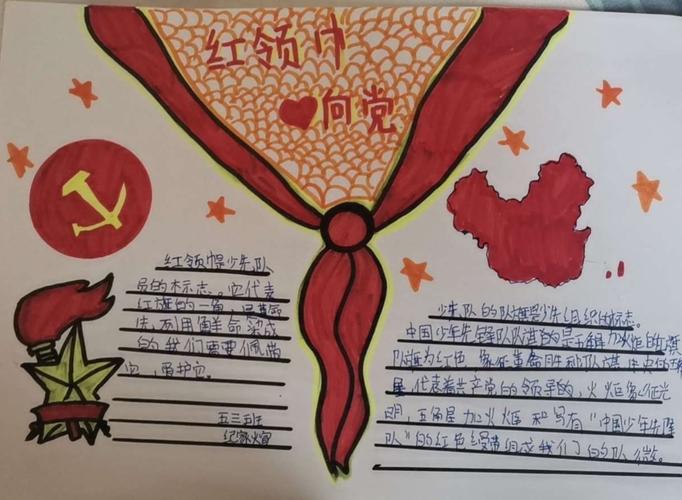 红领巾
向党
红领巾是少先队
员的标志。它代表
红旗的一角，是革命
先烈用鲜血染成
的我们需要佩带
它，爱护它。
五三班
少先队的队旗是少先组织的标志。
中国少年先锋队队旗的是五角星加火炬的红旗
队旗为红色，象征革命胜利队旗中央的五角
星代表着共产党的领导的，火炬象征光
明，五角星加火炬和写有“中国少年先锋
队”的红色绶带组成我们的队徽。